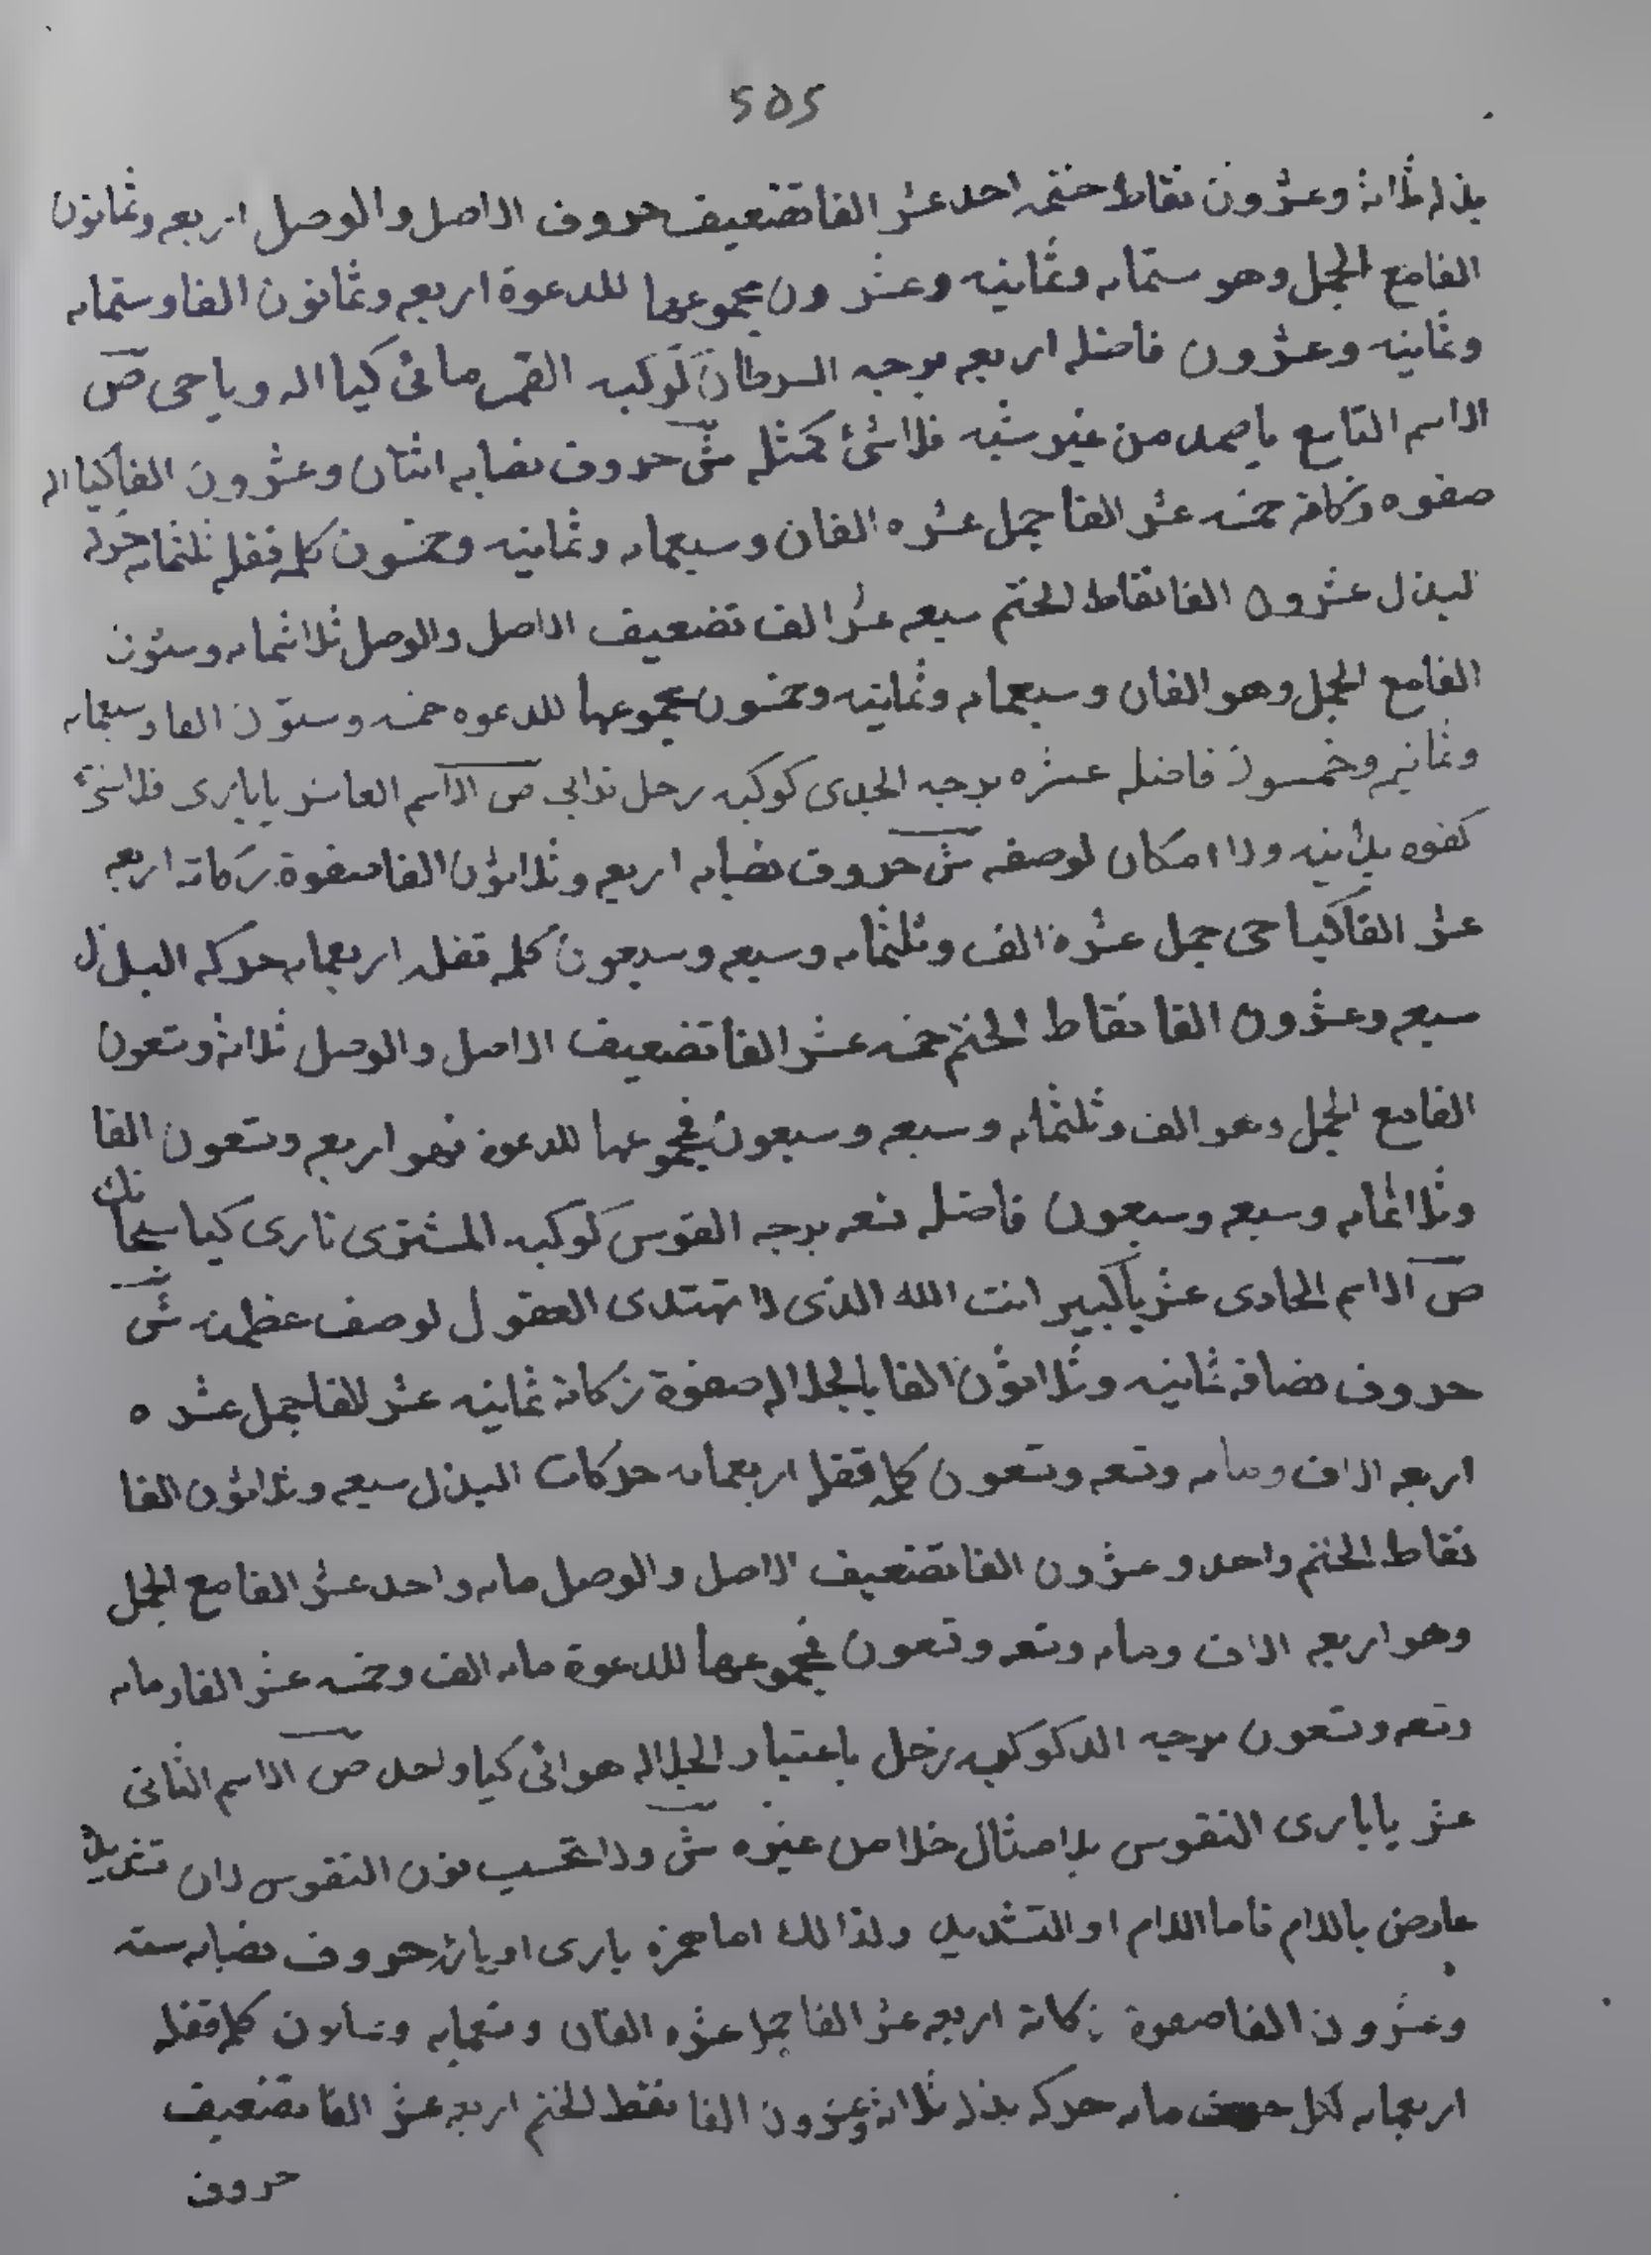 ٢٥٢
بذله ثلاثة وعشرون نقاط ختمه احد عشر الفا تضعيف حروف الاصل والوصل اربعه وثمانون
الفا مع الجمل وهو ستمايه وثمانيه وعشرون مجموعها للدعوة اربعه وثمانون الفا وستمايه
وثمانيه وعشرون فاضله اربعه برجه السرطان كوكبه القمر مائى كيا اله ويا حى ص
الاسم التاسع يا صمد من غير شبه فلا شئ كمثله ش حروف نصابه اثنان وعشرون الفا كيا اله
صفوه زكاة خمسه عشر الفا جمل عشره الفان وسبعمايه وثمانيه وخمسون كلمه قفله ثلثمايه حركه
لبذل عشرون الفا نقاط الختم سبعه عشر الف تضعيف الاصل والوصل ثلاثمايه وستون
الفا مع الجمل وهو الفان وسبعمايه وثمانيه وخمسون مجموعها للدعوه خمسه وستون الفا وسبعمايه
وثمانيه وخمسون فاضله عشره برجه الجدى كوكبه زحل ترابى ص الاسم العاشر يا بارى فلا شئ
كفوه يدانيه ولا امكان لوصفه ش حروف نصابه اربعه وثلاثون الفا صفوة زكاته اربعه
عشر الفا كيا حى جمل عشره الف وثلثمايه وسبعه وسبعون كلمه قفله اربعمايه حركه البذل
سبعه وعشرون الفا نقاط الختم خمسه عشر الفا تضعيف الاصل والوصل ثلاثة وتسعون
الفا مع الجمل وهو الف وثلثمايه وسبعه وسبعون فمجموعها للدعوة فهو اربعه وتسعون الفا
وثلاثمايه وسبعه وسبعون فاضله تسعه برجه القوس كوكبه المشترى نارى كيا سبحانك
ص الاسم الحادى عشر يا كبير انت الله الذى لا تهتدى العقول لوصف عظمته ش
حروف نصابه ثمانيه وثلاثون الفا يا لجلاله صفوة زكاته ثمانيه عشر الفا جمل عشره
اربعه الاف ومايه وتسعه وتسعون كلمه قفله اربعمايه حركات البذل سبعه وثلاثون الفا
نقاط الختم واحد وعشرون الفا تضعيف الاصل والوصل مايه واحد عشر الفا مع الجمل
وهو اربعه الاف ومايه وتسعه وتسعون فمجموعها للدعوة مايه الف وخمسه عشر الفا ومايه
وتسعه وتسعون برجه الدلو كوكبه زحل باعتبار الجلاله هوائى كيا واحد ص الاسم الثانى
عشر يا بارى النفوس بلا مثال خلا من غيره ش ولا تحسب نون النفوس لان تشديد
عارض باللام فاما اللام او التشديد ولذالك اما همزه بارى او يائه حروف نصابه سته
وعشرون الفا صفوة زكاته اربعه عشر الفا جمل عشره الفان وتسعمايه وثمانون كلمه قفله
اربعمايه لكل حرف مايه حركه بذله ثلاثة وعشرون الفا نقط الختم اربعه عشر الفا تضعيف
حروف